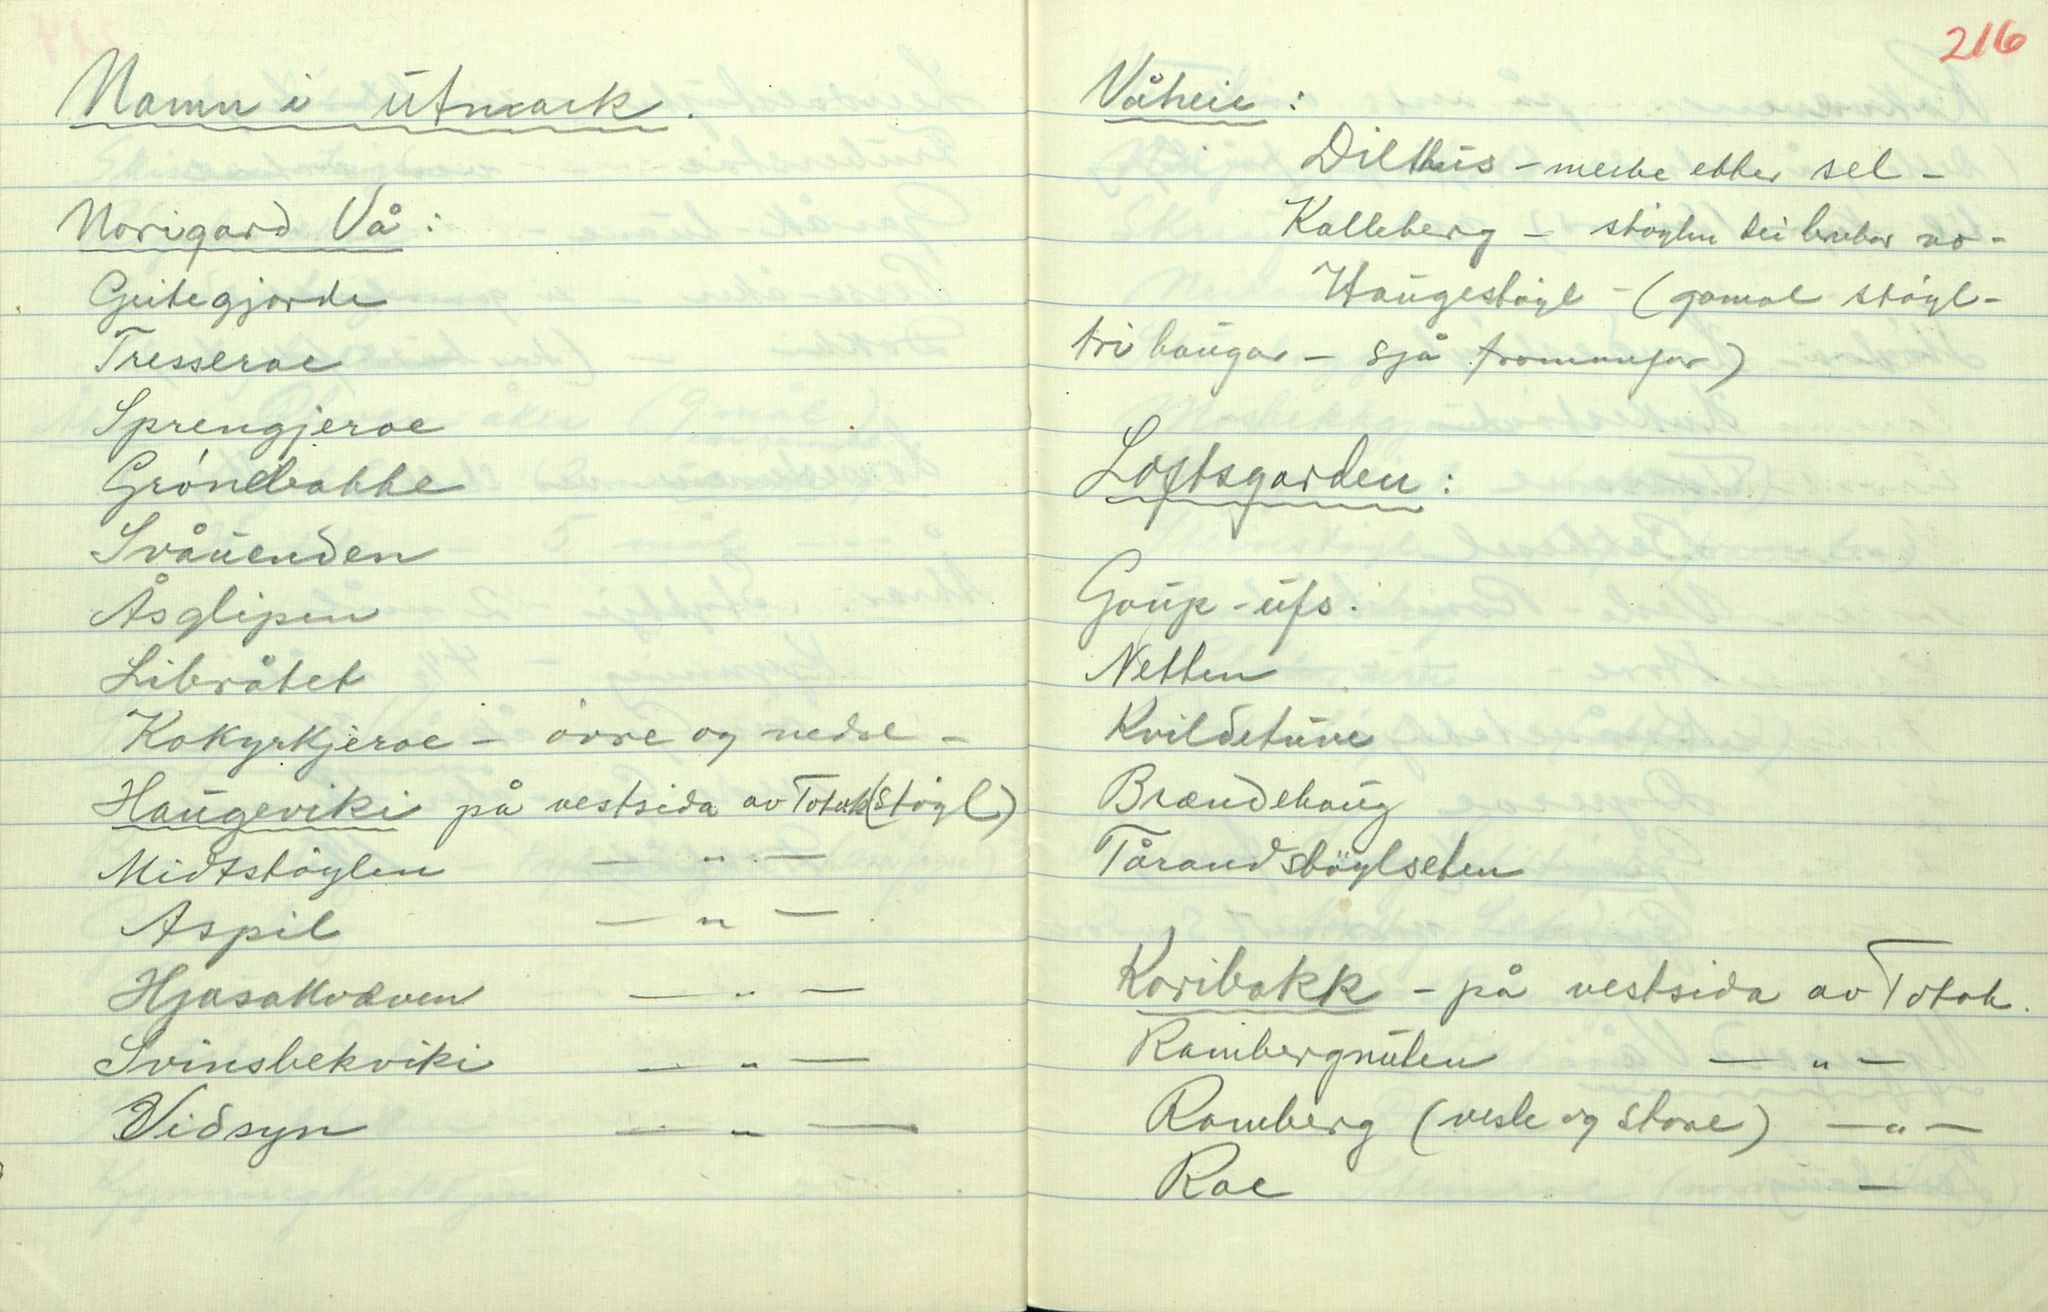 Namn i utmark.
Norigard Vå:
Geitegjorde
Tresseroe
Sprengjeroe
Gróndbakke
Svåuenden
Åsglipen
Libråtet
Kokyrkjeroe – óvre og nedre –
Haugeviki på vestsida av Totak (stóyl)
Midtstóylen — „ —
Aspil — „ —
Hjasakvæven — „ —
Svinsbekviki — „ —
Vidsyn — „ —
216
Våheie:
Dilthus – merke etter sel –
Kalleberg – stóylen dei brukar no –
Haugestóyl – (gamal stóyl –
tri haugar – sjå framanfor)
Loftsgarden:
Gaup-ufs.
Netten
Kvildetuve
Brændehaug
Tårandstöylseten
Koribakk – på vestsida av Totak.
Rambergnuten — „ —
Ramberg (vesle og store) — „ —
Roe —